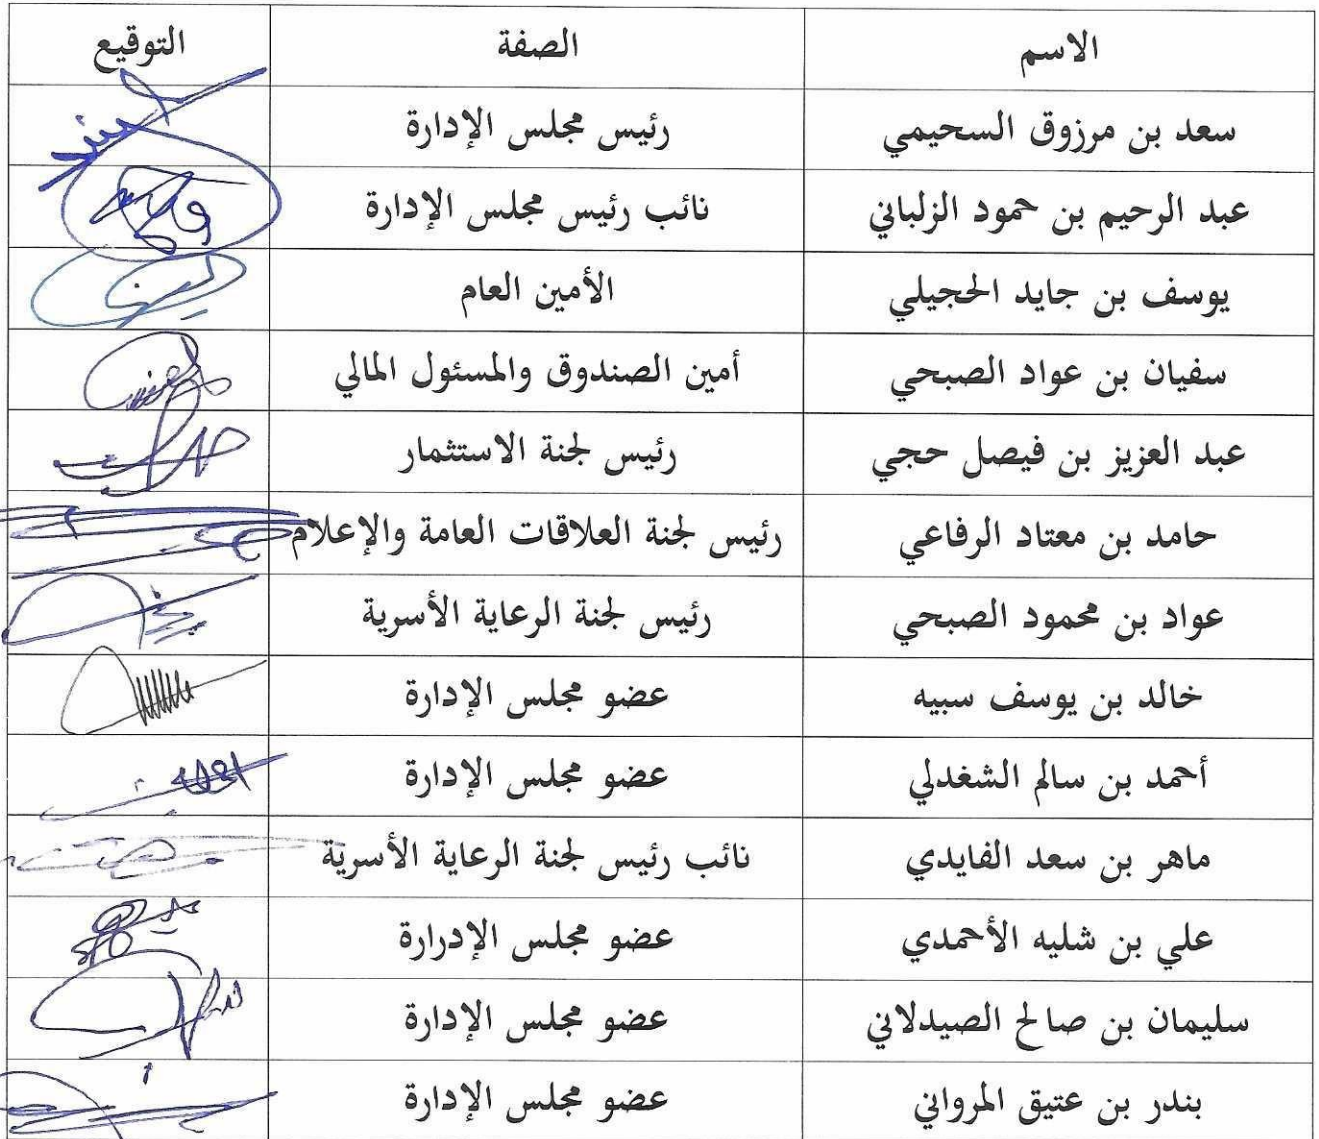 الاسم الصفة التوقيع
سعد بن مرزوق السحيمي رئيس مجلس الإدارة
عبد الرحيم بن حمود الزلباني نائب رئيس مجلس الإدارة
يوسف بن جايد الحجيلي الأمين العام
سفيان بن عواد الصبحي أمين الصندوق والمسئول المالي
عبد العزيز بن فيصل حجي رئيس لجنة الاستثمار
حامد بن معتاد الرفاعي رئيس لجنة العلاقات العامة والإعلام
عواد بن محمود الصبحي رئيس لجنة الرعاية الأسرية
خالد بن يوسف سبيه عضو مجلس الإدارة
أحمد بن سالم الشغدلي عضو مجلس الإدارة
ماهر بن سعد الفايدي نائب رئيس لجنة الرعاية الأسرية
علي بن شليه الأحمدي عضو مجلس الإدرارة
سليمان بن صالح الصيدلاني عضو مجلس الإدارة
بندر بن عتيق المرواني عضو مجلس الإدارة